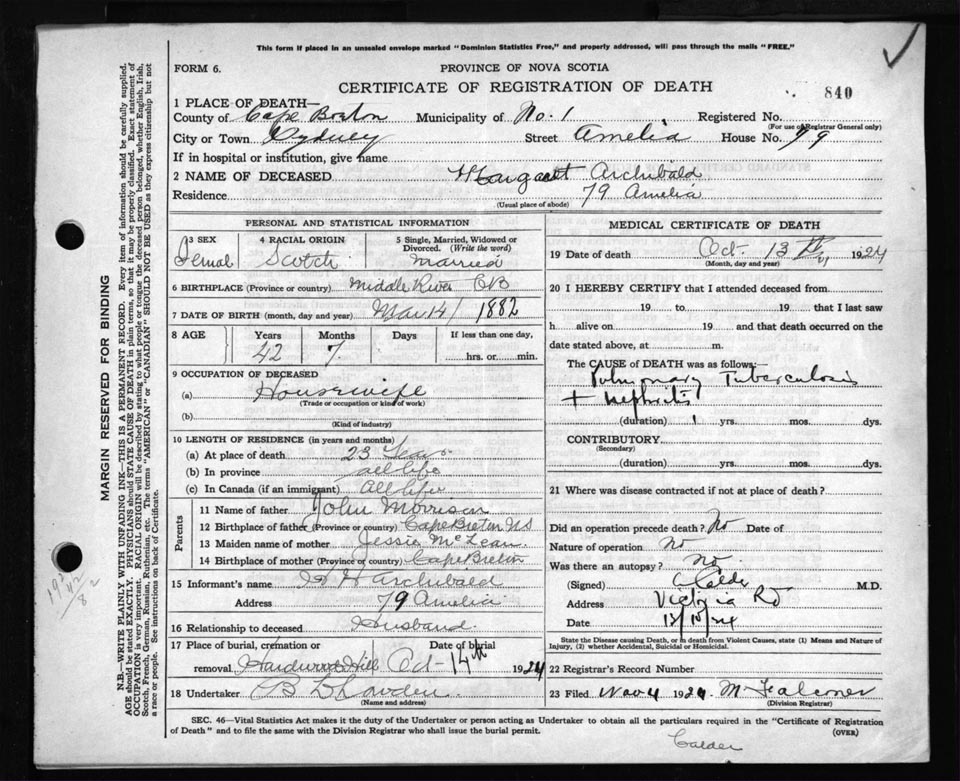 This form if placed in an unsealed envelope marked "Dominion Statistics Free," and properly addressed, will pass through the mails "FREE."
FORM 6.
PROVINCE OF NOVA SCOTIA
CERTIFICATE OF REGISTRATION OF DEATH
840
1 PLACE OF DEATH—
County of Cape Breton Municipality of No. 1 Registered No.
(For use of Registrar General only)
City or Town Sydney Street Amelia House No. 79
If in hospital or institution, give name
2 NAME OF DECEASED Margaret Archibald
Residence 79 Amelia
(Usual place of abode)
PERSONAL AND STATISTICAL INFORMATION
3 SEX 4 RACIAL ORIGIN 5 Single, Married, Widowed or Divorced. (Write the word)
Femal Scotch Married
6 BIRTHPLACE (Province or country) Middle River CB
7 DATE OF BIRTH (month, day and year) Mar 14 1882
8 AGE Years Months Days If less than one day,
42 7 hrs. or min.
9 OCCUPATION OF DECEASED
(a) Housewife
(Trade or occupation or kind of work)
(b)
(Kind of industry)
10 LENGTH OF RESIDENCE (in years and months)
(a) At place of death 23 Years
(b) In province all life
(c) In Canada (if an immigrant) All life
Parents
11 Name of father John Morrison
12 Birthplace of father (Province or country) Cape Breton NS
13 Maiden name of mother Jessie McLean
14 Birthplace of mother (Province or country) Cape Breton
15 Informant's name Archibald
Address 79 Amelia
16 Relationship to deceased Husband
17 Place of burial, cremation or removal Hardwood Hill Date of burial Oct 14th 1924
18 Undertaker
(Name and address)
MEDICAL CERTIFICATE OF DEATH
19 Date of death Oct. 13th, 1924
(Month, day and year)
20 I HEREBY CERTIFY that I attended deceased from
19 to 19 that I last saw
h alive on 19 and that death occurred on the
date stated above, at m.
The CAUSE OF DEATH was as follows:
Pulmonary Tuberculosis
+ Nephritis
(duration) 1 yrs. mos. dys.
CONTRIBUTORY
(Secondary)
(duration) yrs. mos. dys.
21 Where was disease contracted if not at place of death?
Did an operation precede death? No Date of
Nature of operation no
Was there an autopsy? no
(Signed) Calder M.D.
Address Victoria Rd
Date 13/10/24
State the Disease causing Death, or in death from Violent Causes, state (1) Means and Nature of Injury, (2) whether Accidental, Suicidal or Homicidal.
22 Registrar's Record Number
23 Filed Nov 4 1924 M Falconer
(Division Registrar)
SEC. 46—Vital Statistics Act makes it the duty of the Undertaker or person acting as Undertaker to obtain all the particulars required in the "Certificate of Registration
of Death" and to file the same with the Division Registrar who shall issue the burial permit.
(OVER)
Calder
MARGIN RESERVED FOR BINDING
N.B.—WRITE PLAINLY WITH UNFADING INK—THIS IS A PERMANENT RECORD. Every item of information should be carefully supplied.
AGE should be stated EXACTLY. PHYSICIANS should STATE CAUSE OF DEATH in plain terms, so that it may be properly classified. Exact statement of
OCCUPATION is very important. RACIAL ORIGIN will be described by stating to what people or tongue the deceased person belonged, whether English, Irish,
Scotch, French, German, Russian, Ruthenian, etc. The terms "AMERICAN" or "CANADIAN" SHOULD NOT BE USED as they express citizenship but not
a race or people. See instructions on back of Certificate.